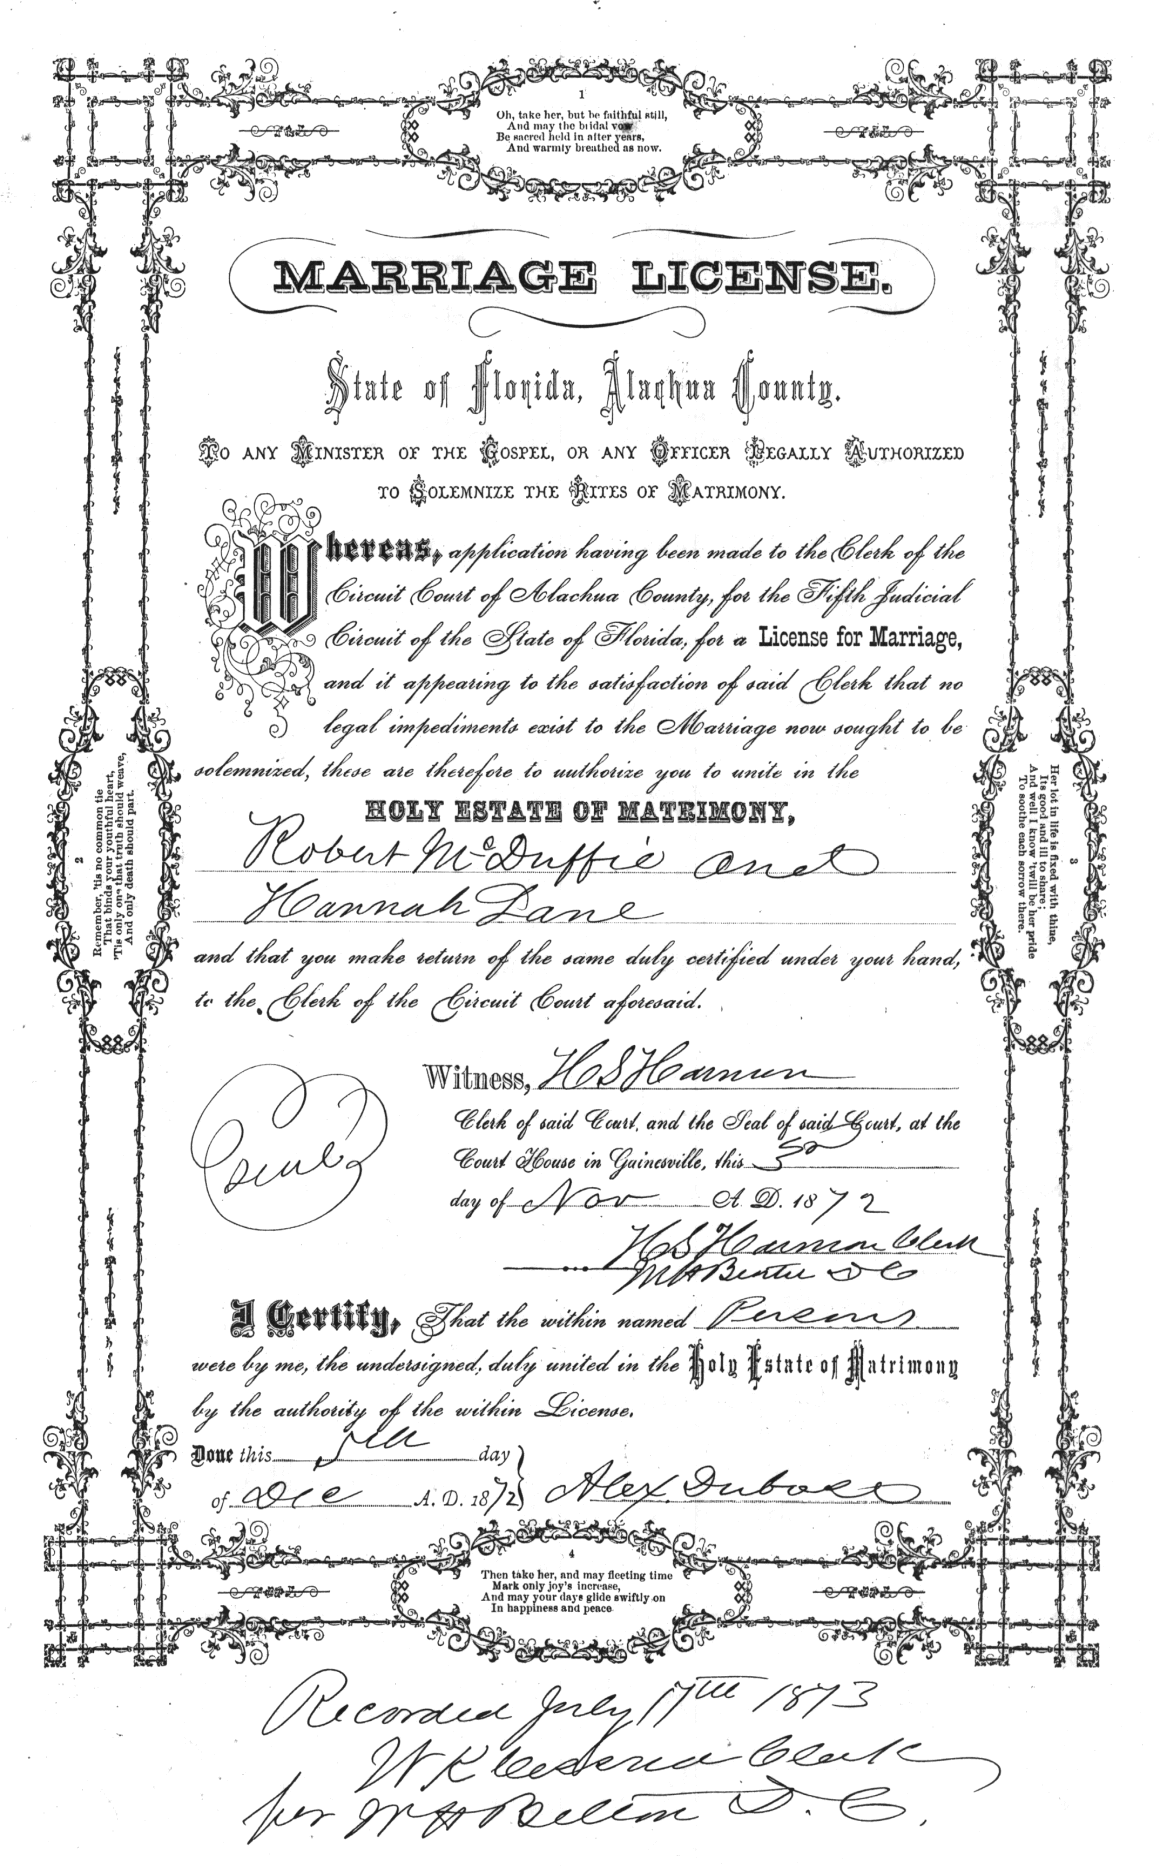 1
Oh, take her, but be faithful still,
And may the bridal vow
Be sacred held in after years,
And warmly breathed as now.
MARRIAGE LICENSE.
State of Florida, Alachua County.
TO ANY MINISTER OF THE GOSPEL, OR ANY OFFICER LEGALLY AUTHORIZED
TO SOLEMNIZE THE RITES OF MATRIMONY.
Whereas, application having been made to the Clerk of the
Circuit Court of Alachua County, for the Fifth Judicial
Circuit of the State of Florida, for a License for Marriage,
and it appearing to the satisfaction of said Clerk that no
legal impediments exist to the Marriage now sought to be
solemnized, these are therefore to authorize you to unite in the
HOLY ESTATE OF MATRIMONY,
Robert McDuffie and
Hannah Lane
and that you make return of the same duly certified under your hand,
to the Clerk of the Circuit Court aforesaid.
2
Remember, 'tis no common tie
That binds your youthful heart,
'Tis only one that truth should weave,
And only death should part.
3
Her lot in life is fixed with thine,
Its good and ill to share;
And well I know 'twill be her pride
To soothe each sorrow there.
Witness, H S Harmon
Clerk of said Court, and the Seal of said Court, at the
Court House in Gainesville, this
day of Nov A. D. 1872
H S Harmon Clerk
D C
I Certify, That the within named Persons
were by me, the undersigned, duly united in the Holy Estate of Matrimony
by the authority of the within License.
Done this 5th day
of Dec A. D. 1872 Alex. Dubose
4
Then take her, and may fleeting time
Mark only joy's increase,
And may your days glide swiftly on
In happiness and peace
Recorded July 17th 1873
W K Cessna Clerk
per Belton D. C.